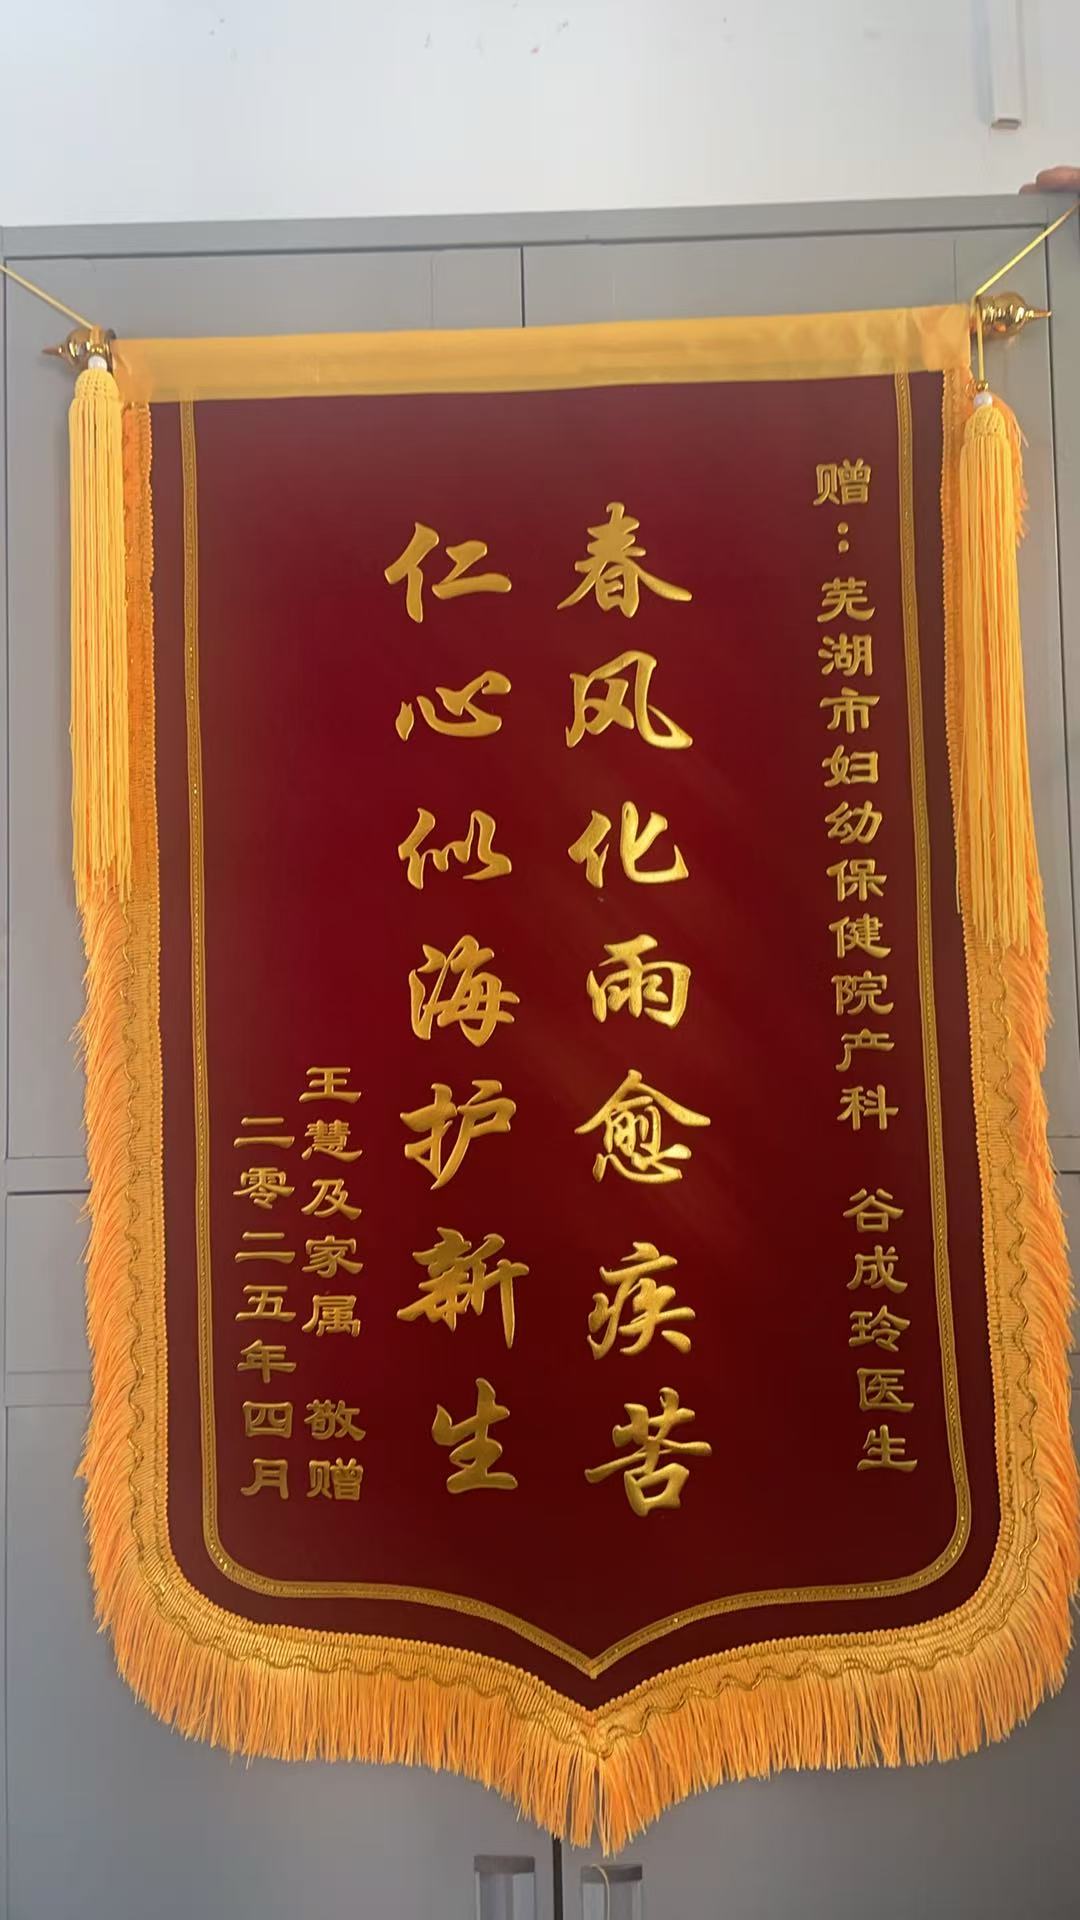 赠：芜湖市妇幼保健院产科 谷成玲医生
春风化雨愈疾苦
仁心似海护新生
王慧及家属 敬赠
二零二五年四月